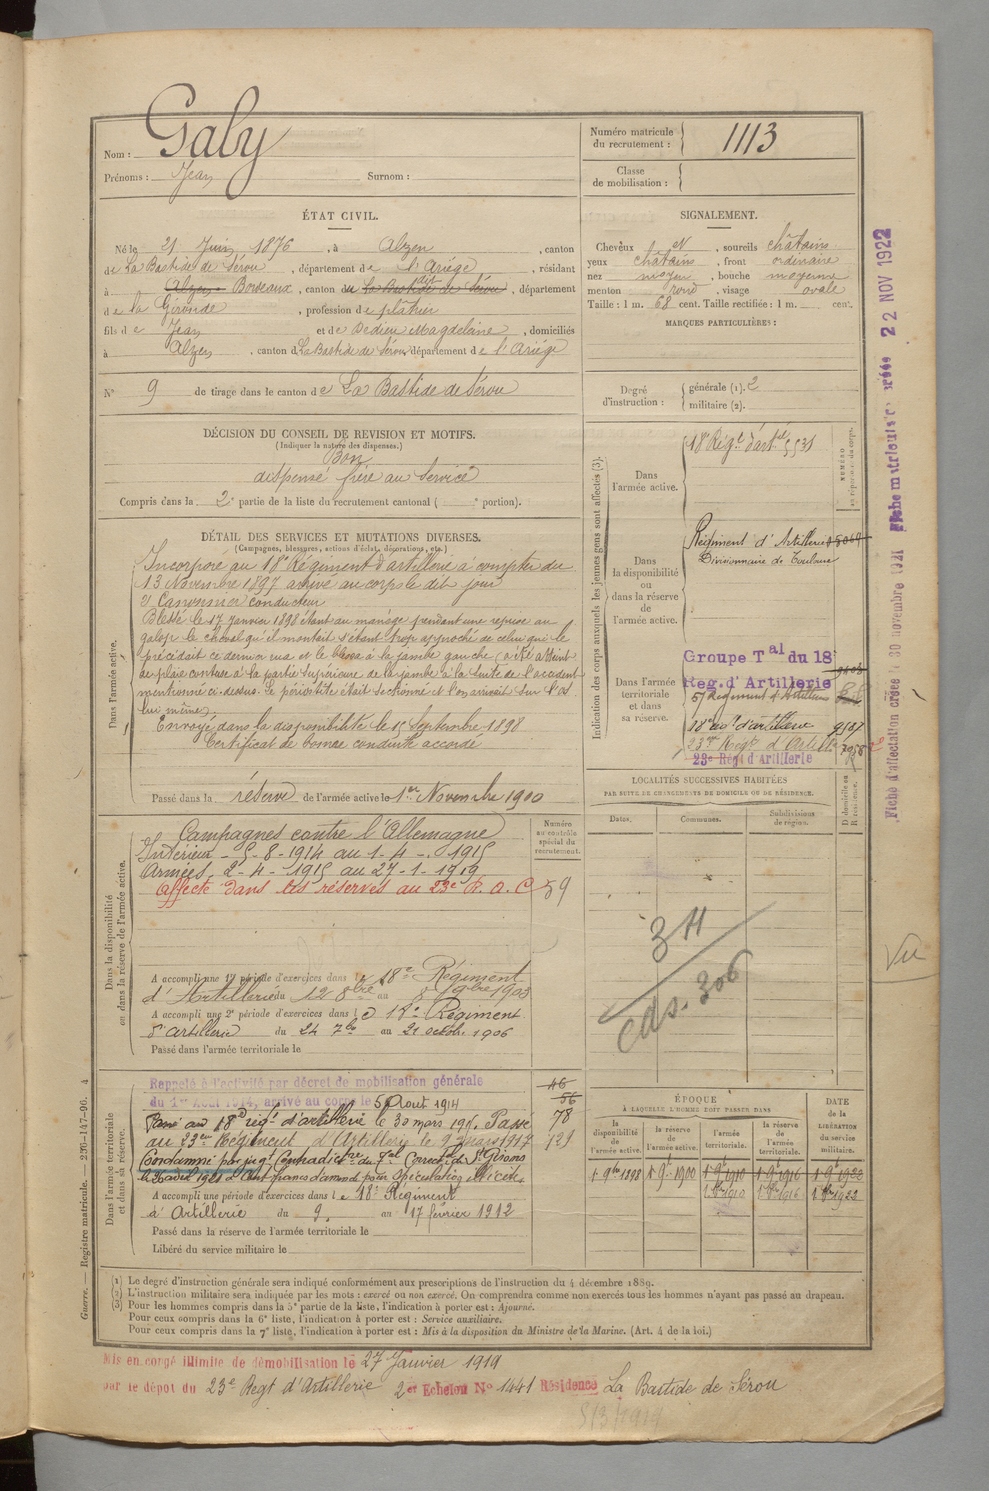 Nom : Galy
Prénoms : Jean Surnom :
Numéro matricule du recrutement : 1113
Classe de mobilisation :
ÉTAT CIVIL.
Né le 21 Juin 1876, à Alzen, canton
de La Bastide de Sérou, département de l'Ariège, résidant
à Alzen Bordeaux, canton du dit La Bastide de Sérou, département
de la Gironde, profession de plâtrier
fils de Jean et de Dedieu Magdelaine, domiciliés
à Alzen, canton de La Bastide de Sérou, département de l'Ariège
N° 9 de tirage dans le canton de La Bastide de Sérou
SIGNALEMENT.
Cheveux N, sourcils châtains
yeux châtains, front ordinaire
nez moyen, bouche moyenne
menton rond, visage ovale
Taille : 1 m. 68 cent. Taille rectifiée : 1 m. cent.
MARQUES PARTICULIÈRES :
Degré d'instruction : générale (1). 2
militaire (2).
DÉCISION DU CONSEIL DE REVISION ET MOTIFS.
(Indiquer la nature des dispenses.)
Bon
dispensé frère au Service
Compris dans la 2e partie de la liste du recrutement cantonal ( e portion).
DÉTAIL DES SERVICES ET MUTATIONS DIVERSES.
(Campagnes, blessures, actions d'éclat, décorations, etc.)
Dans l'armée active.
Incorporé au 18e Régiment d'artillerie à compter du
13 Novembre 1897 arrivé au corps le dit jour
2e Canonnier conducteur
Blessé le 17 janvier 1898 étant au manège pendant une reprise au
galop le cheval qu'il montait s'étant trop approché de celui qui le
précédait ce dernier rua et le blessa à la jambe gauche (a été atteint
de plaie contuse à la partie supérieure de la jambe à la suite de l'accident
mentionné ci-dessus. Le périoste était sectionné et l'on arrivait sur l'os
lui même)
Envoyé dans la disponibilité le 15 Septembre 1898
Certificat de bonne conduite accordé
Passé dans la réserve de l'armée active le 1er Novembre 1900
Indication des corps auxquels les jeunes gens sont affectés (3).
NUMÉRO
au répertoire du corps.
Dans l'armée active.
18e Régt d'artie 5531
Dans la disponibilité ou dans la réserve de l'armée active.
Régiment d'Artillerie
Divisionnaire de Toulouse
Dans l'armée territoriale et dans sa réserve.
Groupe Tal du 18
Reg. d'Artillerie
57 Régiment d'Artillerie
18e d'artillerie 9587
23me Régt d'Artill 7958
23e Régt d'Artillerie
LOCALITÉS SUCCESSIVES HABITÉES
PAR SUITE DE CHANGEMENTS DE DOMICILE OU DE RÉSIDENCE.
Dates. Communes. Subdivisions de région. D domicile ou R résidence.
311
Cds. 306
Vu
Dans la disponibilité ou dans la réserve de l'armée active.
Numéro au contrôle spécial du recrutement.
Campagnes contre l'Allemagne
Intérieur - 5-8-1914 au 1-4-1915
Armées, 2-4-1915 au 27-1-1919
Affecté dans les réserves au 23e R. A. C 59
A accompli une 1re période d'exercices dans le 18e Régiment
d'Artillerie du 12 8bre au 8 9bre 1903
A accompli une 2e période d'exercices dans le 18e Régiment
d'artillerie du 24 7bre au 21 octobre 1906
Passé dans l'armée territoriale le
Dans l'armée territoriale et dans sa réserve.
Rappelé à l'activité par décret de mobilisation générale
du 1er Août 1914, arrivé au corps le 5 Août 1914
Passé au 18e régt d'artillerie le 30 mars 1915. Passé
au 23eme Régiment d'Artillerie le 9 mars 1917
Condamné par jugt Contradictre du Tal Correctel de St Girons
le avril 1921 à Cent francs d'amende pour spéculation illicite
46
56
78
121
A accompli une période d'exercices dans le 18e Régiment
d'Artillerie du 9 au 17 février 1912
Passé dans la réserve de l'armée territoriale le
Libéré du service militaire le
ÉPOQUE
À LAQUELLE L'HOMME DOIT PASSER DANS
DATE de la LIBÉRATION du service militaire.
la disponibilité de l'armée active. la réserve de l'armée active. l'armée territoriale. la réserve de l'armée territoriale.
1 9bre 1898 1 9bre 1900 1 9bre 1910 1 9bre 1916 1 9bre 1922
1 8bre 1910 1 8bre 1916 1 8bre 1922
(1) Le degré d'instruction générale sera indiqué conformément aux prescriptions de l'instruction du 4 décembre 1889.
(2) L'instruction militaire sera indiquée par les mots : exercé ou non exercé. On comprendra comme non exercés tous les hommes n'ayant pas passé au drapeau.
(3) Pour les hommes compris dans la 5e partie de la liste, l'indication à porter est : Ajourné.
Pour ceux compris dans la 6e liste, l'indication à porter est : Service auxiliaire.
Pour ceux compris dans la 7e liste, l'indication à porter est : Mis à la disposition du Ministre de la Marine. (Art. 4 de la loi.)
Mis en congé illimité de démobilisation le 27 Janvier 1919
par le dépôt du 23e Regt d'Artillerie 2er Echelon No 1441 Résidence La Bastide de Sérou
5/3/1919
Guerre. — Registre matricule. — 236-147-96. 4
Fiche d'affectation créée le 30 novembre 1921 Fiche matricule créée 22 NOV 1922